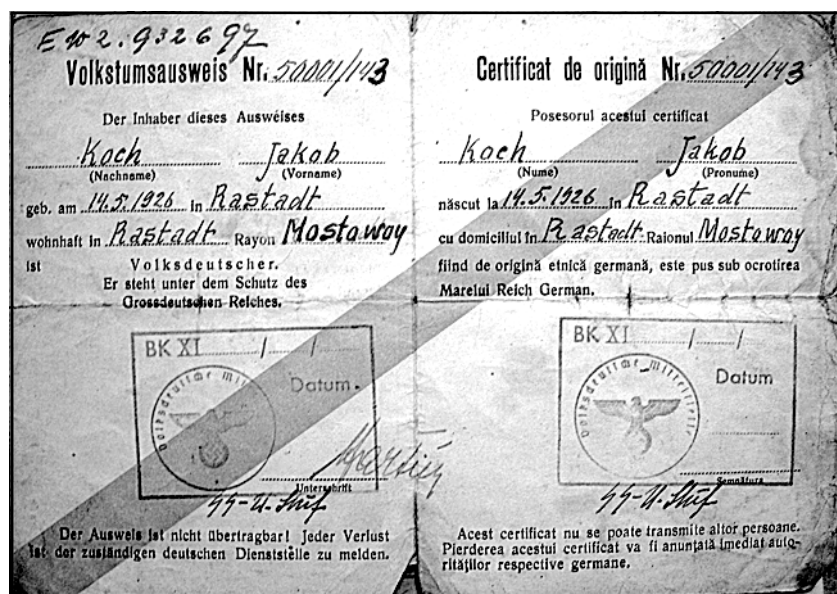 EW2.932697
Volkstumsausweis Nr. 50001/143
Der Inhaber dieses Ausweises
Koch Jakob
(Nachname) (Vorname)
geb. am 14.5.1926 in Rastadt
wohnhaft in Rastadt Rayon Mostoway
ist Volksdeutscher.
Er steht unter dem Schutz des
Grossdeutschen Reiches.
BK XI / /
Volksdeutsche Mittelstelle
Datum
Unterschrift
SS-U.Stuf
Der Ausweis ist nicht übertragbar! Jeder Verlust
ist der zuständigen deutschen Dienststelle zu melden.
Certificat de origină Nr. 50001/143
Posesorul acestui certificat
Koch Jakob
(Nume) (Pronume)
născut la 14.5.1926 în Rastadt
cu domiciliul în Rastadt Raionul Mostoway
fiind de origină etnică germană, este pus sub ocrotirea
Marelui Reich German.
BK XI / /
Volksdeutsche Mittelstelle
Datum
Semnătura
SS-U.Stuf
Acest certificat nu se poate transmite altor persoane.
Pierderea acestui certificat va fi anunțată imediat auto-
rităților respective germane.